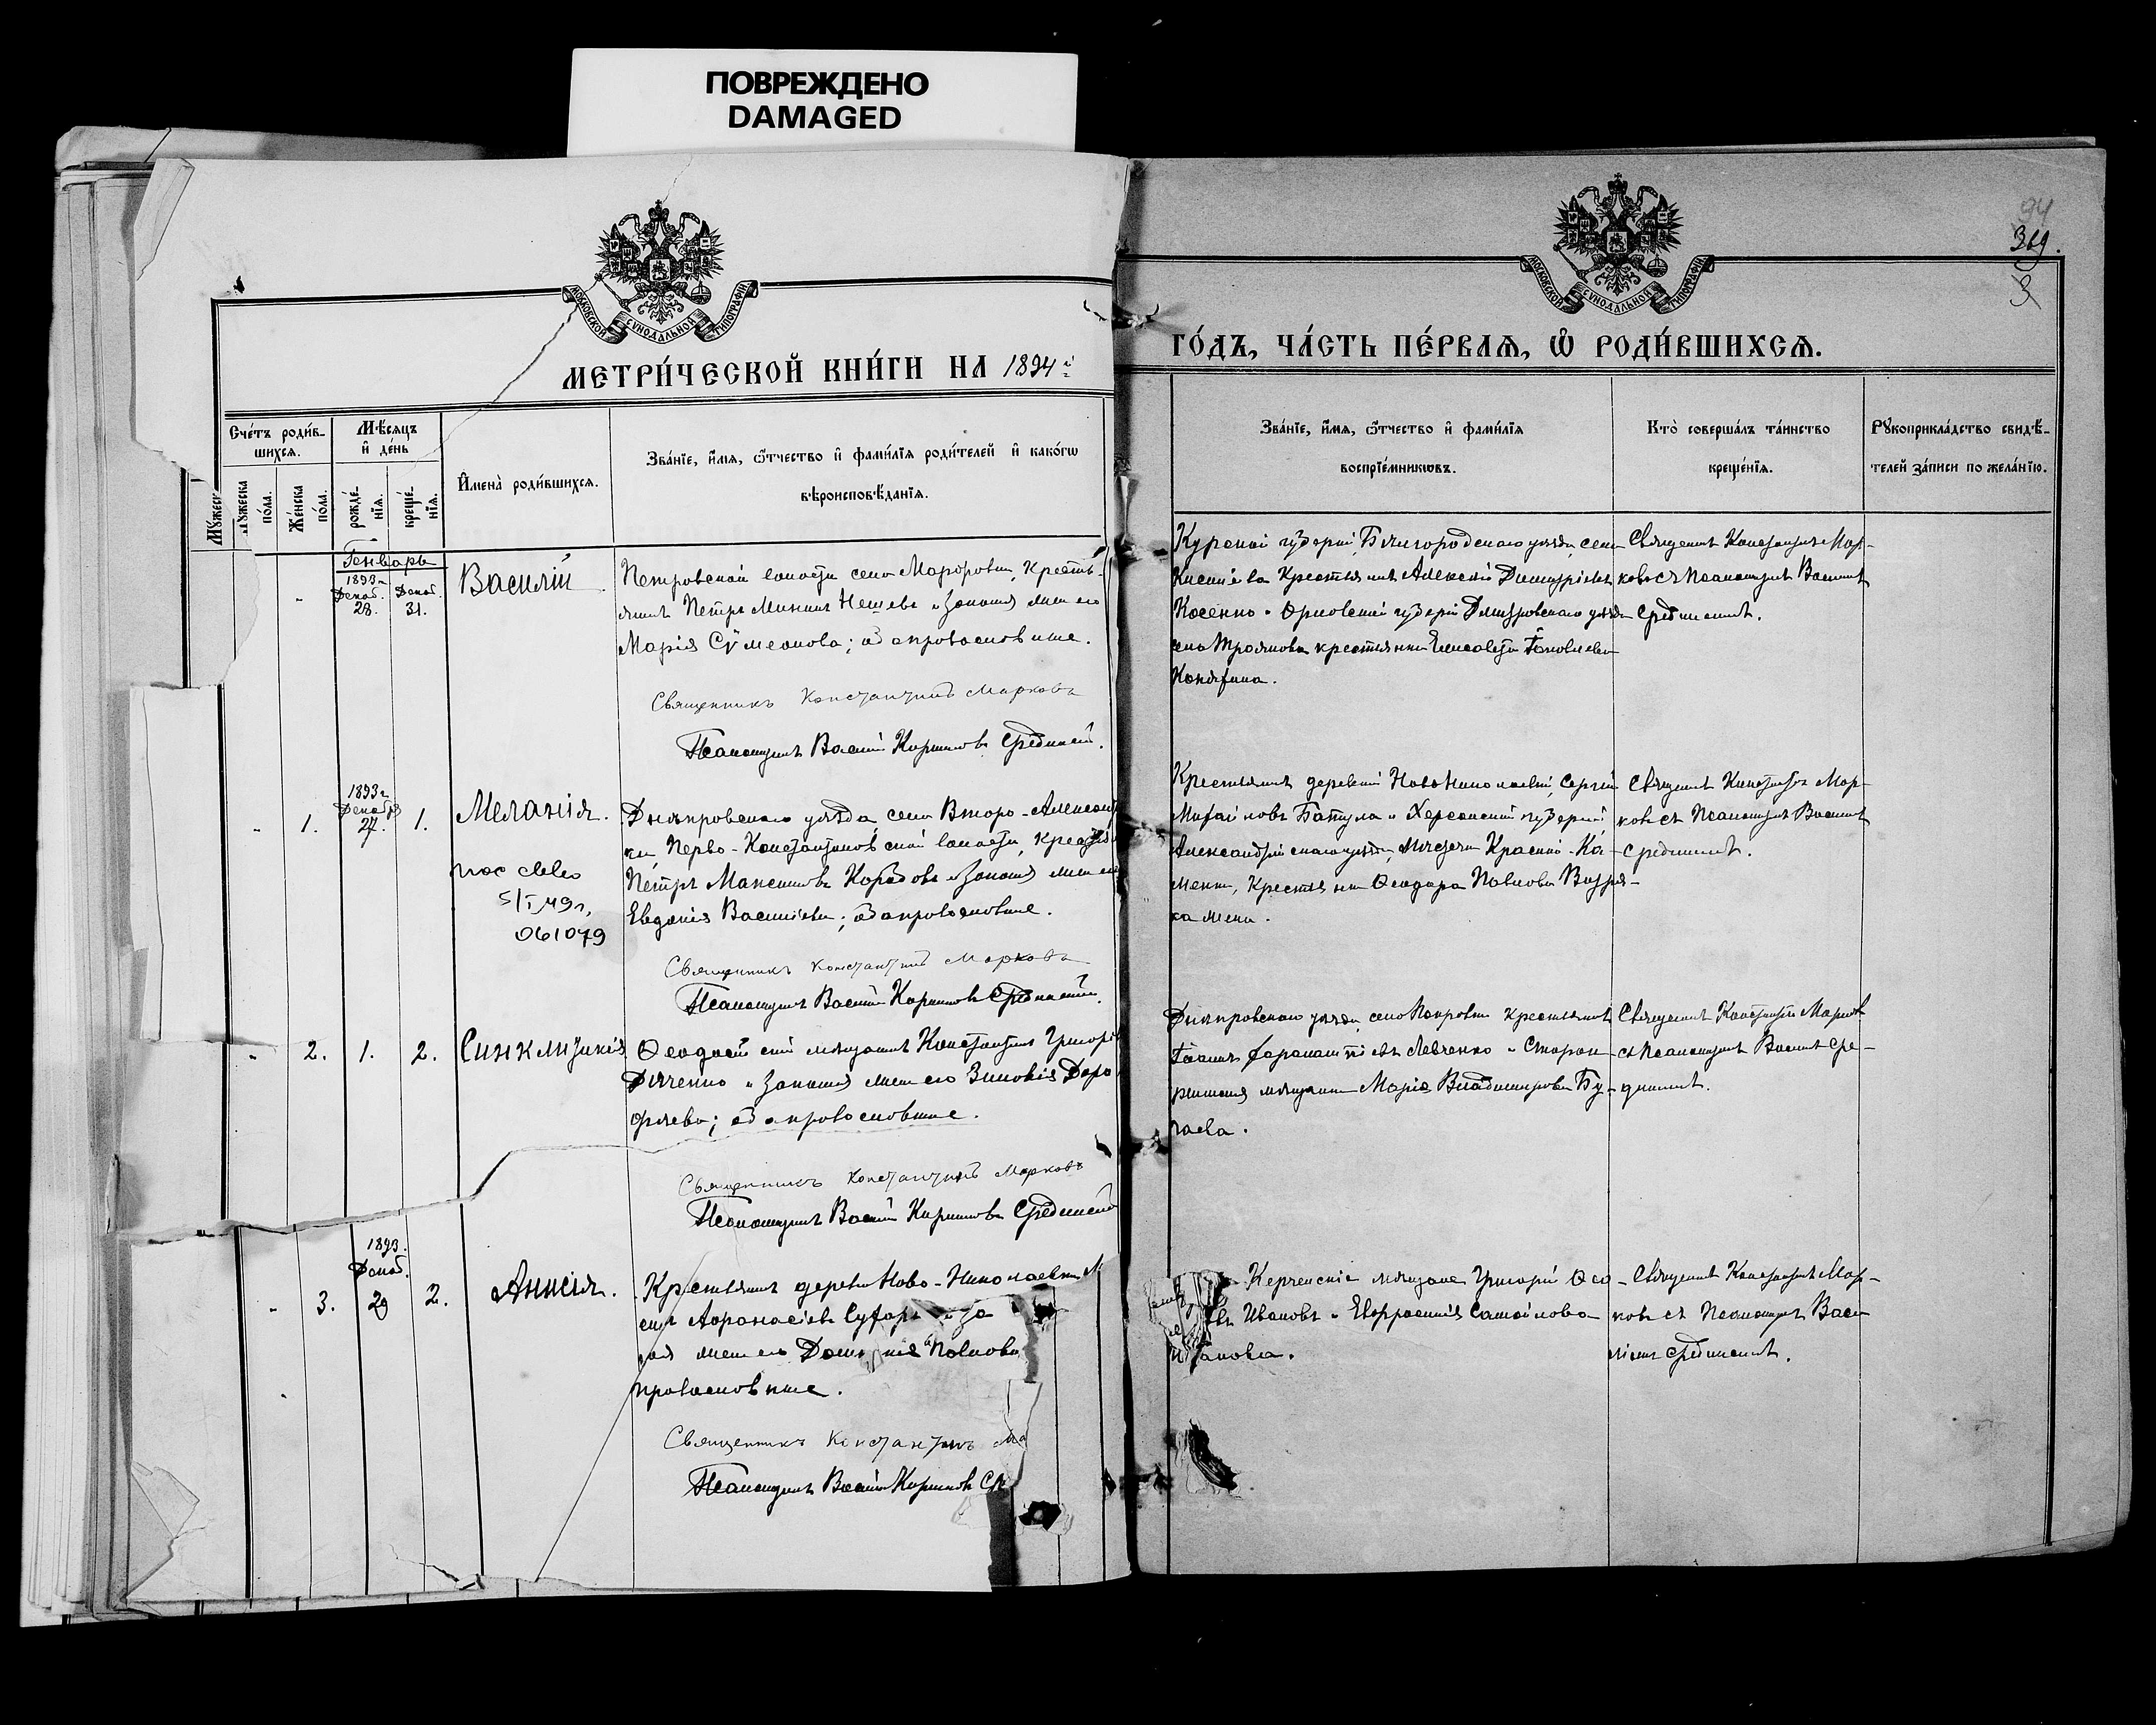 ПОВРЕЖДЕНО
DAMAGED
94
369.
3
МОСКОВСКОЙ СѴНОДАЛЬНОЙ ТИПОГРАФІИ
МОСКОВСКОЙ СѴНОДАЛЬНОЙ ТИПОГРАФІИ
МЕТРИ́ЧЕСКОЙ КНИ́ГИ НА 1894й
ГО́ДЪ, ЧА́СТЬ ПЕ́РВАѦ, Ѡ҆ РОДИ́ВШИХСѦ.
Сче́тъ роди́в-
шихсѧ.
Мꙋжеска
по́ла.
Же́нска
по́ла.
Мѣ́сѧцъ
и҆ де́нь
рожде́-
нїѧ.
креще́-
нїѧ.
И҆мена̀ роди́вшихсѧ.
Зва́нїе, и҆́мѧ, ѻ҆́тчество и҆ фами́лїѧ роди́телей и҆ како́гѡ
вѣроисповѣ́данїѧ.
Зва́нїе, и҆́мѧ, ѻ҆́тчество и҆ фами́лїѧ
воспрїе́мникѡвъ.
Кто̀ соверша́лъ та́инство
креще́нїѧ.
Рꙋкоприкла́дство свидѣ́-
телей за́писи по жела́нїю.
Генварь
1893г. Декаб. 28.
Декаб. 31.
Василій
Петровской волости села Маѳоровки, Кресть-
янинъ Петръ Мининъ Нешевъ и законная жена его
Марія Сѵмеонова; оба православные.
Священникъ Константинъ Марковъ
Псаломщикъ Василій Кириловъ Срединскій.
Курской губерніи, Бѣлгородскаго уѣзда, села
Крестьянинъ Алексѣй Димитріевъ
Косенко и Орловской губерніи Дмитровскаго уѣзда
села Троянова крестьянка Елисавета Іаковлева
Священникъ Константинъ Мар-
ковъ съ Псаломщикъ Василій
Срединскій.
1893г. Декабрь 27.
1. 1.
Меланія.
5/I 49г.
061079
Днѣпровскаго уѣзда села Второ-Александров
ки, Перво-Константиновской волости, крестьянинъ
Петръ Максимовъ Коробовъ и законная жена его
Евдокія Васильева; оба православные.
Священникъ Константинъ Марковъ
Псаломщикъ Василій Кириловъ Срединскій.
Крестьянинъ деревни Ново Николаевки, Сергій
Михайловъ Батула и Херсонской губерніи
Александрійскаго уѣзда, мѣстечка Красной-Ка-
менки, Крестьянка Ѳеодора Павлова
Священникъ Константинъ Мар-
ковъ съ Псаломщикъ Василій
Срединскій.
2. 1. 2.
Синклитикія
Ѳеодосійскій мѣщанинъ Константинъ Григорьевъ
Дяченко и законная жена его Зиновія Доро
ѳеева; оба православные.
Священникъ Константинъ Марковъ
Псаломщикъ Василій Кириловъ Срединскій
Днѣпровскаго уѣзда, села Покровки крестьянинъ
Іоаннъ Левченко и Старо
мѣщанка Марія Владимирова Бу-
гаева.
Священникъ Константинъ Марковъ
съ Псаломщикъ Василій Сре-
динскій.
1893. Декаб. 29
3. 2.
Анисія.
Крестьянинъ деревни Ново-Николаевки М
Аѳанасіевъ и за
ная жена его Павлова
православные.
Священникъ Константинъ Ма
Псаломщикъ Василій Кириловъ Ср
Керченскіе мѣщане Григорій Ѳео-
Ивановъ и Евфросинія Самойлова
Священникъ Константинъ Мар-
ковъ съ Псаломщикъ Васи
ліемъ Срединскій.